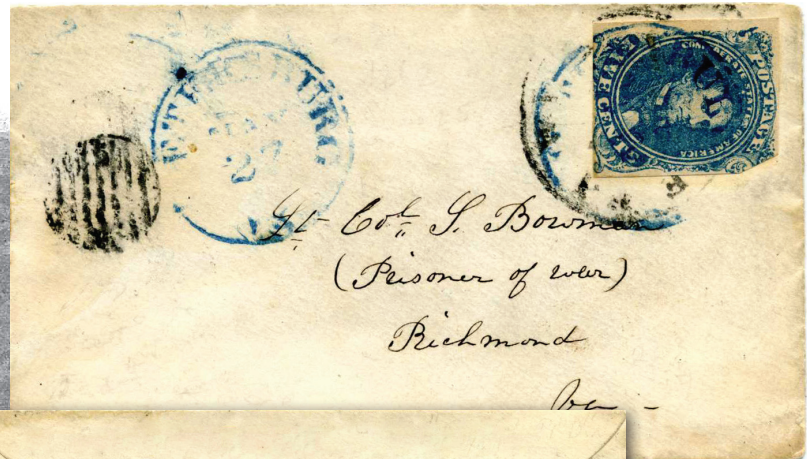 PETERSBURG
27
POSTAGE
CONFEDERATE STATES OF AMERICA
Lt- Col. S. Bowman
(Prisoner of war)
Richmond
Va -